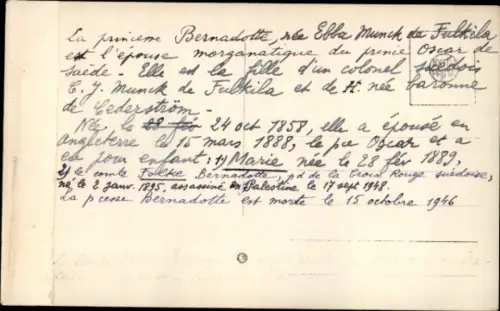 La princesse Bernadotte, née Ebba Munck de Fulkila
est l'épouse morganatique du prince Oscar de
Suède - Elle est la fille d'un colonel suédois
C. J. Munck de Fulkila et de H. née baronne
de Cederström -
Née le 28 fév 24 oct 1858, elle a épousé en
Angleterre le 15 mars 1888, le pce Oscar et a
eu pour enfant: 1) Marie née le 28 fév 1889,
2) le comte Folke Bernadotte, pd de la Croix Rouge suédoise,
né le 2 janv. 1895, assassiné en Palestine le 17 sept 1948.
La pcesse Bernadotte est morte le 15 octobre 1946